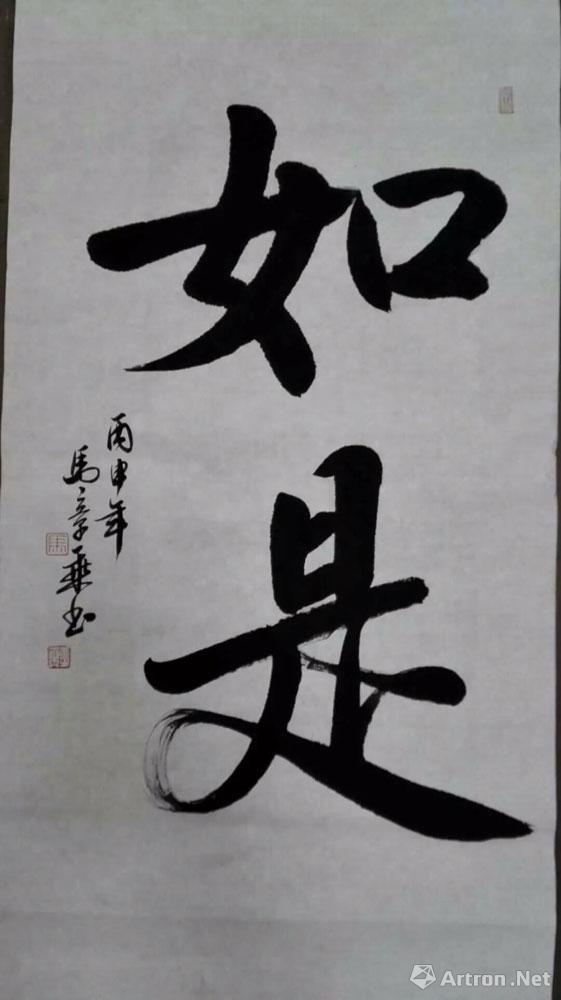 如是
丙申年
馬章乘书
Artron.Net